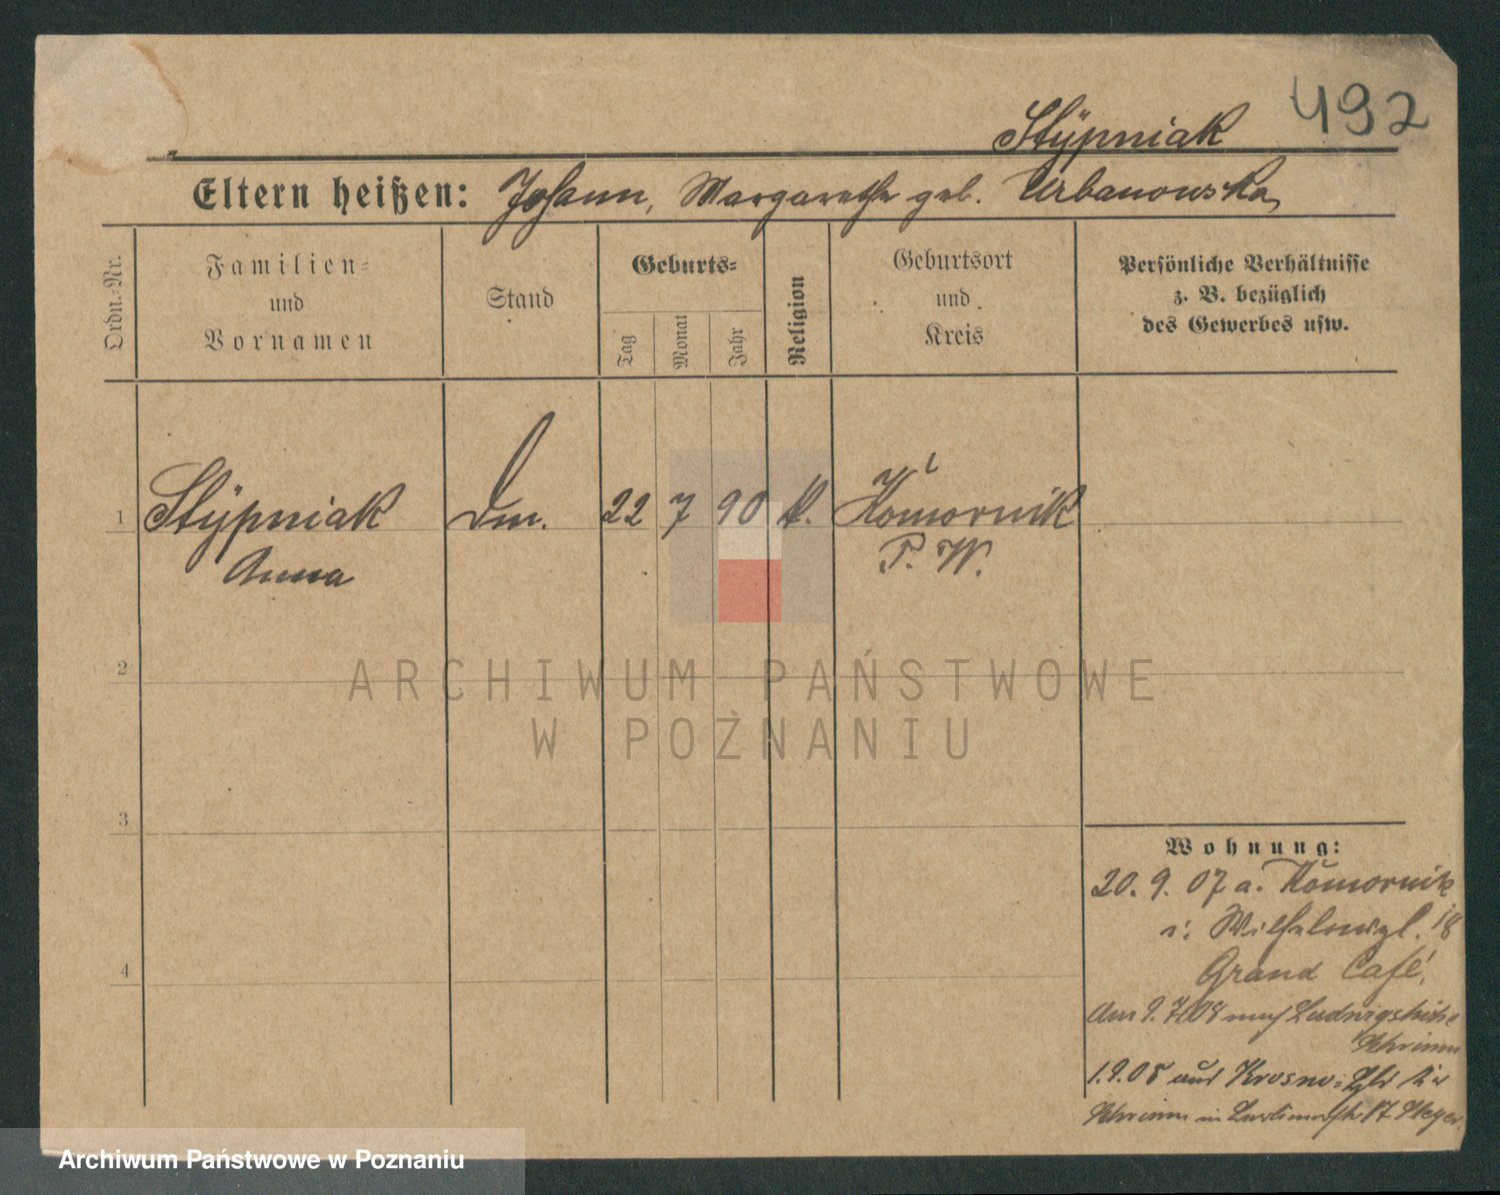 492
Stÿpniak
Eltern heißen: Johann, Margarethe geb. Urbanowska
Ordn.-Nr.
Familien-
und
Vornamen
Stand
Geburts-
Tag
Monat
Jahr
Religion
Geburtsort
und
Kreis
Persönliche Verhältnisse
z. B. bezüglich
des Gewerbes usw.
1 Stÿpniak Dm. 22 7 90 k. Komornik
Anna P. W.
2
ARCHIWUM PAŃSTWOWE
W POZNANIU
3
4
Wohnung:
20. 9. 07 a. Komornik
i. Wilhelmspl. 18
Grand Café,
Am 9. 7. 08 nach
Schrimm
1. 9. 08 aus Krosno
Schrimm in 17
Archiwum Państwowe w Poznaniu